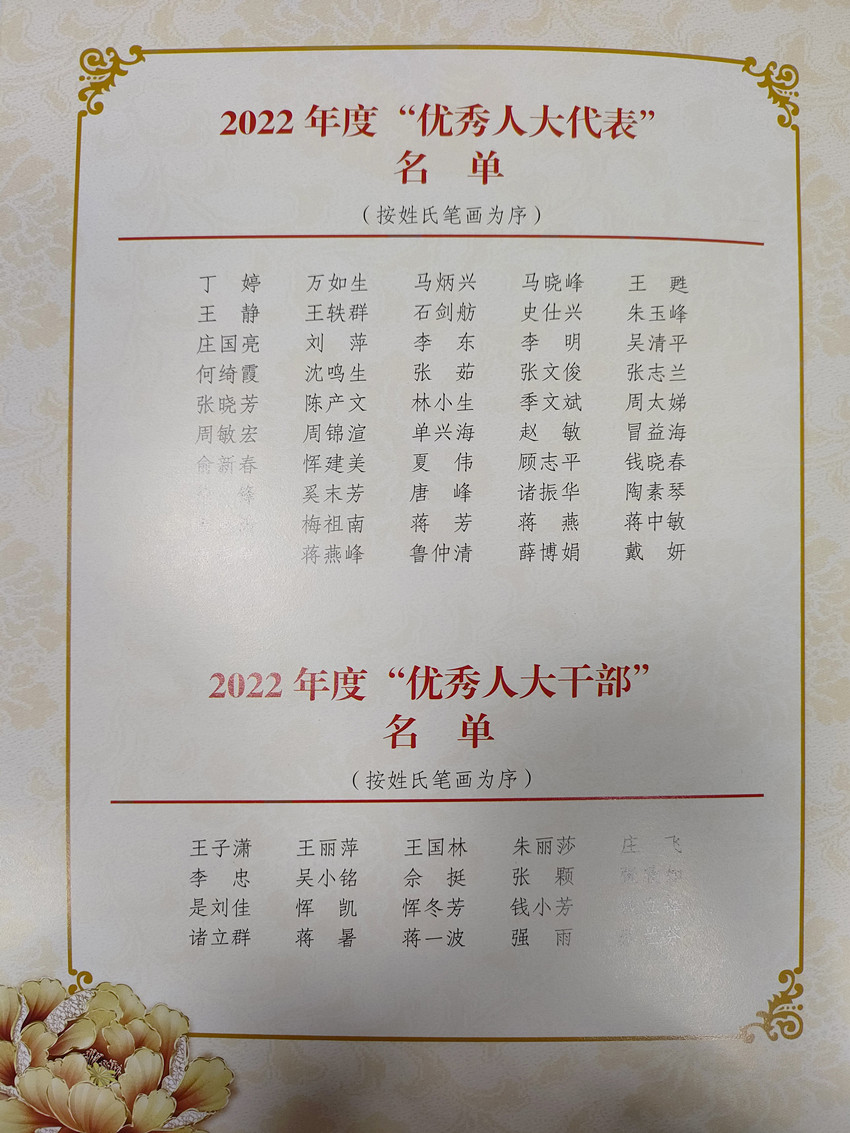 2022 年度“优秀人大代表”
名 单
（按姓氏笔画为序）
丁 婷 万如生 马炳兴 马晓峰 王 甦
王 静 王轶群 石剑舫 史仕兴 朱玉峰
庄国亮 刘 萍 李 东 李 明 吴清平
何绮霞 沈鸣生 张 茹 张文俊 张志兰
张晓芳 陈产文 林小生 季文斌 周太娣
周敏宏 周锦渲 单兴海 赵 敏 冒益海
俞新春 恽建美 夏 伟 顾志平 钱晓春
锋 奚末芳 唐 峰 诸振华 陶素琴
梅祖南 蒋 芳 蒋 燕 蒋中敏
蒋燕峰 鲁仲清 薛博娟 戴 妍
2022 年度“优秀人大干部”
名 单
（按姓氏笔画为序）
王子潇 王丽萍 王国林 朱丽莎 庄 飞
李 忠 吴小铭 佘 挺 张 颗
是刘佳 恽 凯 恽冬芳 钱小芳
诸立群 蒋 暑 蒋一波 强 雨